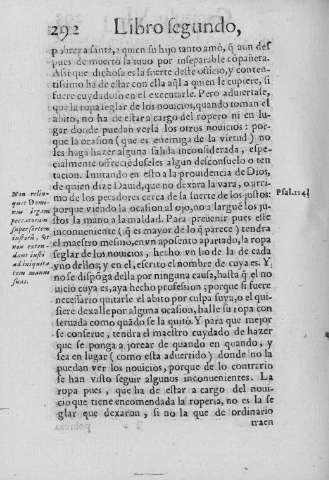 292 Libro segundo,
pobreza santa, a quien su hijo tanto amò, q̃ aun des
pues de muerto la tuuo por inseparable cõpañera.
Assi que dichosa es la suerte deste officio, y conten-
tissimo ha de estar con ella aq̃l a quien le cupiere, si
fuere cuydadoso en el executarle. Pero aduiertase,
que la ropa seglar de los nouicios, quando toman el
abito, no ha de estar a cargo del ropero ni en lu-
gar donde puedan verla los otros nouicios: por-
que la ocasion (que es enemiga de la virtud) no
les haga hazer alguna salida inconsiderada, espe-
cialmente offreciẽdoseles algun desconsuelo o ten
tacion. Imitando en esto a la prouidencia de Dios,
de quien dize Dauid, que no dexarà la vara, o açote
mo de los pecadores cerca de la suerte de los justos:
porque viendo la ocasion al ojo, no alarguẽ los jus
tos la mano a la maldad. Para preuenir pues este
inconueniente (q̃ es mayor de lo q̃ parece) tendra
el maestro mesmo, en vn aposento apartado, la ropa
seglar de los nouicios, hecho vn lio de la de cada
vno dellos; y en el, escrito el nombre de cuya es. Y
no se dispõga della por ninguna causa, hasta q̃ el no
uicio cuya es, aya hecho profession; porque si fuere
necessario quitarle el abito por culpa suya, o el qui
siere dexalle por alguna ocasion, halle su ropa con
seruada como quãdo se la quitò. Y para que mejor
se conserue, tendra el maestro cuydado de hazer
que se ponga a jorear de quando en quando, y
sea en lugar (como esta aduertido) donde no la
puedan ver los nouicios, porque de lo contrario
se han visto seguir algunos inconuenientes. La
ropa pues, que ha de estar a cargo del noui-
cio que tiene encomendada la roperia, no es la se
glar que dexaron, si no la que de ordinario
traen
Non relin-
quet Domi-
nus virgam
peccatorum
super sortem
iustorũ, vt
non exten-
dant iusti
ad iniquita
tem manus
suas.
Psal. 124